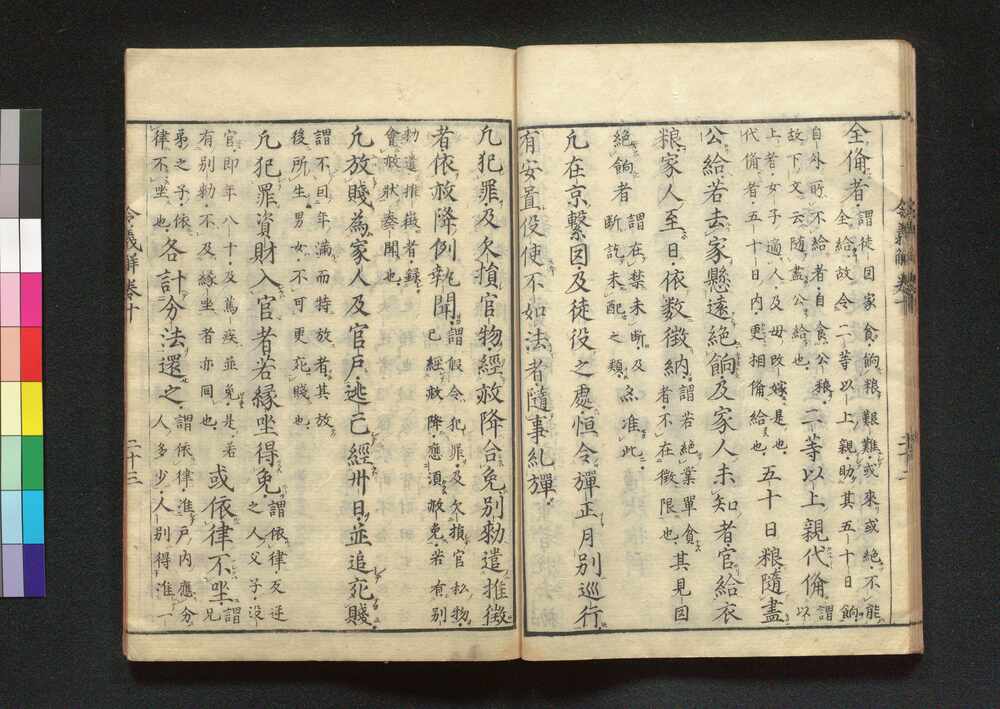 全備者謂徒囚家食餉粮艱難或來或絶不能
全給故令二等以上親助其五十日餉
自外所不給者自食公粮
故下文云隨盡公給也二等以上親代備謂以
上若女子適人及母改嫁是也
代備者五十日内更相備給也五十日粮隨盡
公給若去家懸遠絶餉及家人未知者官給衣
粮家人至日依數徵納謂若絶業單貧
者不在徵限也其見囚
絶餉者謂在禁未斷及
斷訖未配之類亦准此
凡在京繫囚及徒役之處恒令彈正月別巡行
有安置役使不如法者隨事糺彈
令義解卷十
凡犯罪及欠損官物經赦降合免別勅遣推徵
者依赦降例執聞謂假令犯罪及欠損官私物
已經赦降應須赦免若有別
勅遣推徵者錄
會赦狀奏聞也
凡放賤為家人及官戸逃亡經卅日並追充賤
謂不囙年滿而特放者其放
後所生男女不可更充賤也
凡犯罪資財入官者若緣坐得免謂依律反逆
之人父子沒
官即年八十及篤疾並免是若
有別勅不及緣坐者亦同也或依律不坐謂兄
弟之子依
律不坐也各計分法還之謂依律准戸内應分
人多少人別得准
令義解卷十
二十三